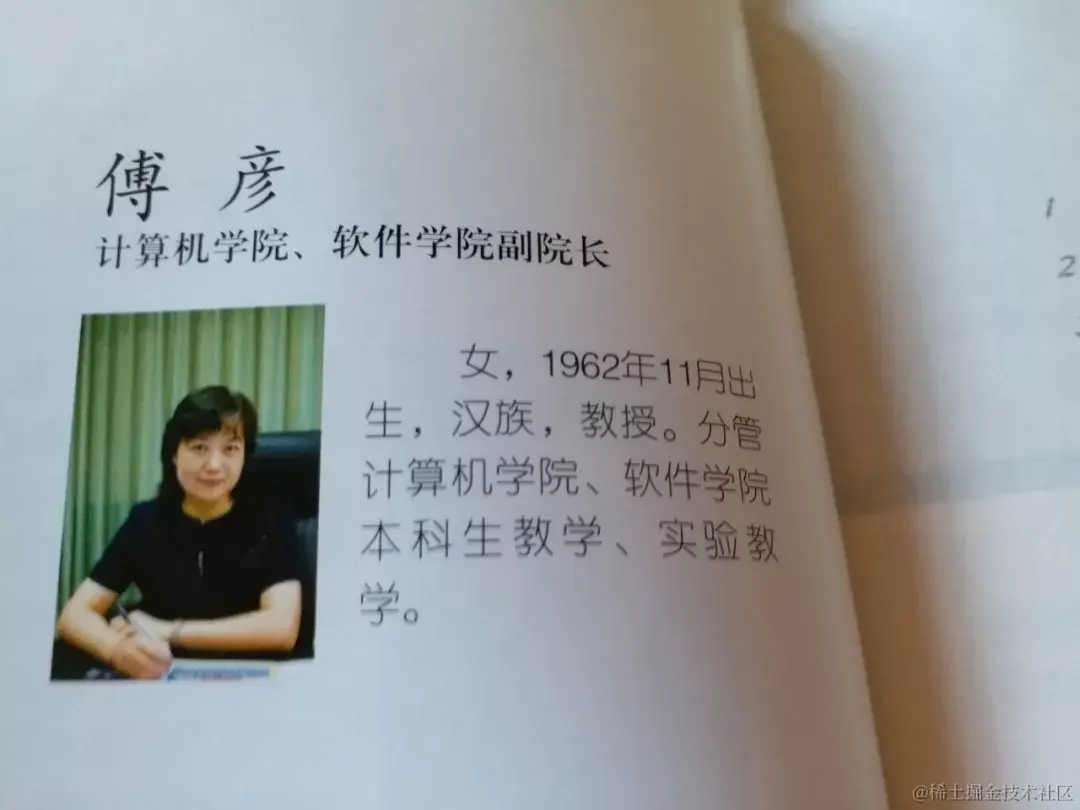 傅 彦
计算机学院、软件学院副院长
女，1962年11月出
生，汉族，教授。分管
计算机学院、软件学院
本科生教学、实验教
学。
1
2
@稀土掘金技术社区